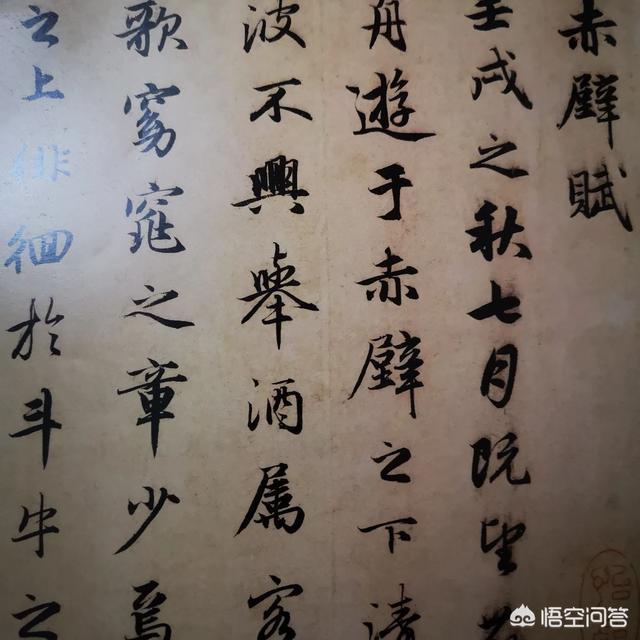 赤壁賦
壬戌之秋七月既望
舟遊于赤壁之下清
波不興舉酒属客
歌窈窕之章少焉
之上徘徊於斗牛之
悟空问答